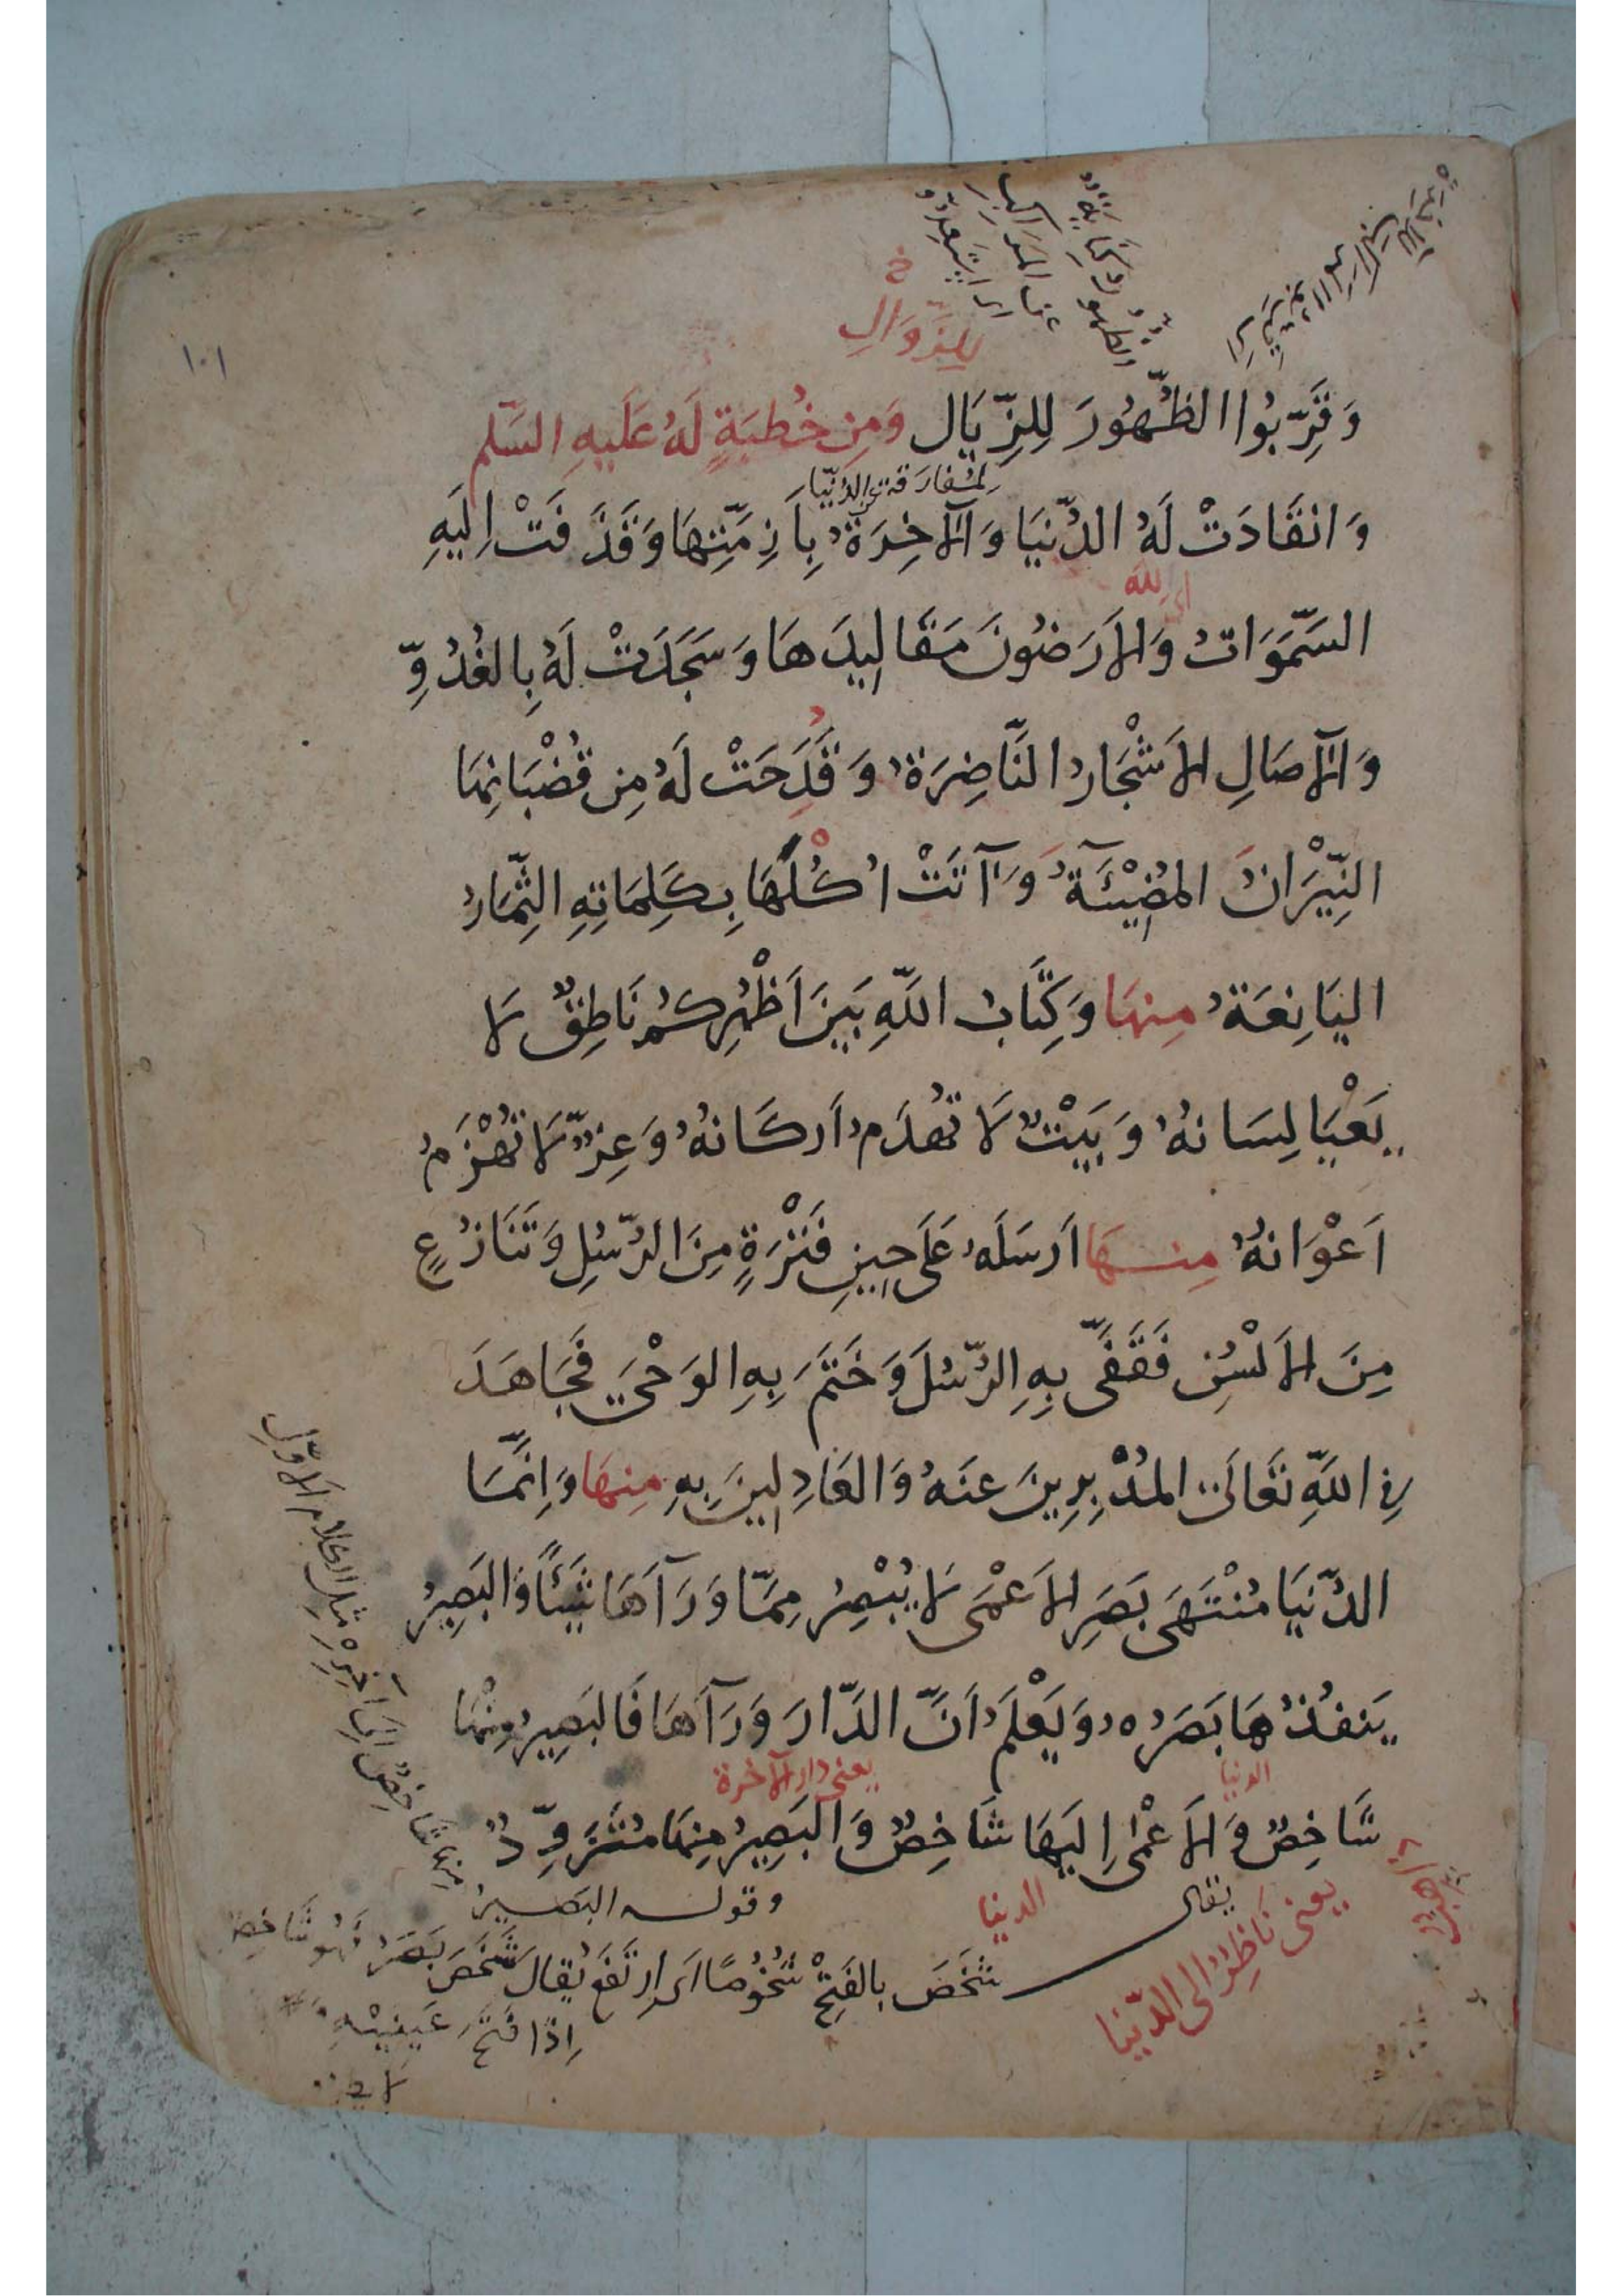 ١٠١
للزَّوَالِ خ
وَقَرِّبُوا الظُّهُورَ لِلزِّيَالِ وَمِن خُطبَةٍ لَهُ عَلَيهِ السَّلم
لمُفارَقة الدُّنيَا
وَانقَادَتْ لَهُ الدُّنيَا وَالآخِرَةُ بِأَزِمَّتِهَا وَقَذَفَتْ اِلَيهِ
اى لله
السَّمَوَاتُ وَالاَرَضُونَ مَقَالِيدَهَا وَسَجَدَتْ لَهُ بِالغُدُوِّ
وَالآصَالِ الاَشْجَارُ النَّاضِرَةُ وَقَدَحَتْ لَهُ مِن قُضْبَانِهَا
النِّيْرَانَ المُضِيْئَةَ وَآتَتْ اُكُلَهَا بِكَلِمَاتِهِ الثِّمَارُ
اليَانِعَةُ مِنهَا وَكِتَابُ اللهِ بَينَ اَظْهُرِكُم نَاطِقٌ لَا
يَعْيَا لِسَانُهُ وَبَيْتٌ لَا تُهْدَمُ اَركَانُهُ وَعِزٌّ لَا تُهْزَمُ
اَعْوَانُهُ مِنهَا اَرسَلَهُ عَلَى حِينِ فَتْرَةٍ مِنَ الرُّسُلِ وَتَنَازُعٍ
مِنَ الاَلْسُنِ فَقَفَّى بِهِ الرُّسُلَ وَخَتَمَ بِهِ الوَحْيَ فَجَاهَدَ
فِي اللهِ تَعَالَى المُدْبِرِينَ عَنهُ وَالعَادِلِينَ بِهِ مِنهَا وَاِنَّمَا
الدُّنيَا مُنْتَهَى بَصَرِ الاَعْمَى لَا يُبْصِرُ مِمَّا وَرَآءَهَا شَيْئًا وَالبَصِيرُ
يَنفُذُهَا بَصَرُهُ وَيَعْلَمُ اَنَّ الدَّارَ وَرَآءَهَا فَالبَصِيرُ مِنْهَا
الدنيا
يعنى دار الآخرة
شَاخِصٌ وَالاَعْمَى اِلَيهَا شَاخِصٌ وَالبَصِيرُ مِنهَا مُتَزَوِّدٌ
الدنيا
يعنى نَاظِرٌ الى الدّنيا
وقوله البَصيرُ
مِنهَا شَاخِصٌ اِلَى آخِرِهْ مثل الكلام الاوّلِ
يقال
شَخَصَ بالفَتْحِ شُخُوصًا اَى ارتَفَعَ يُقال شَخَصَ بَصَرُه فَهُو شَاخِصٌ
اِذَا فَتَحَ عَينَيْهِ